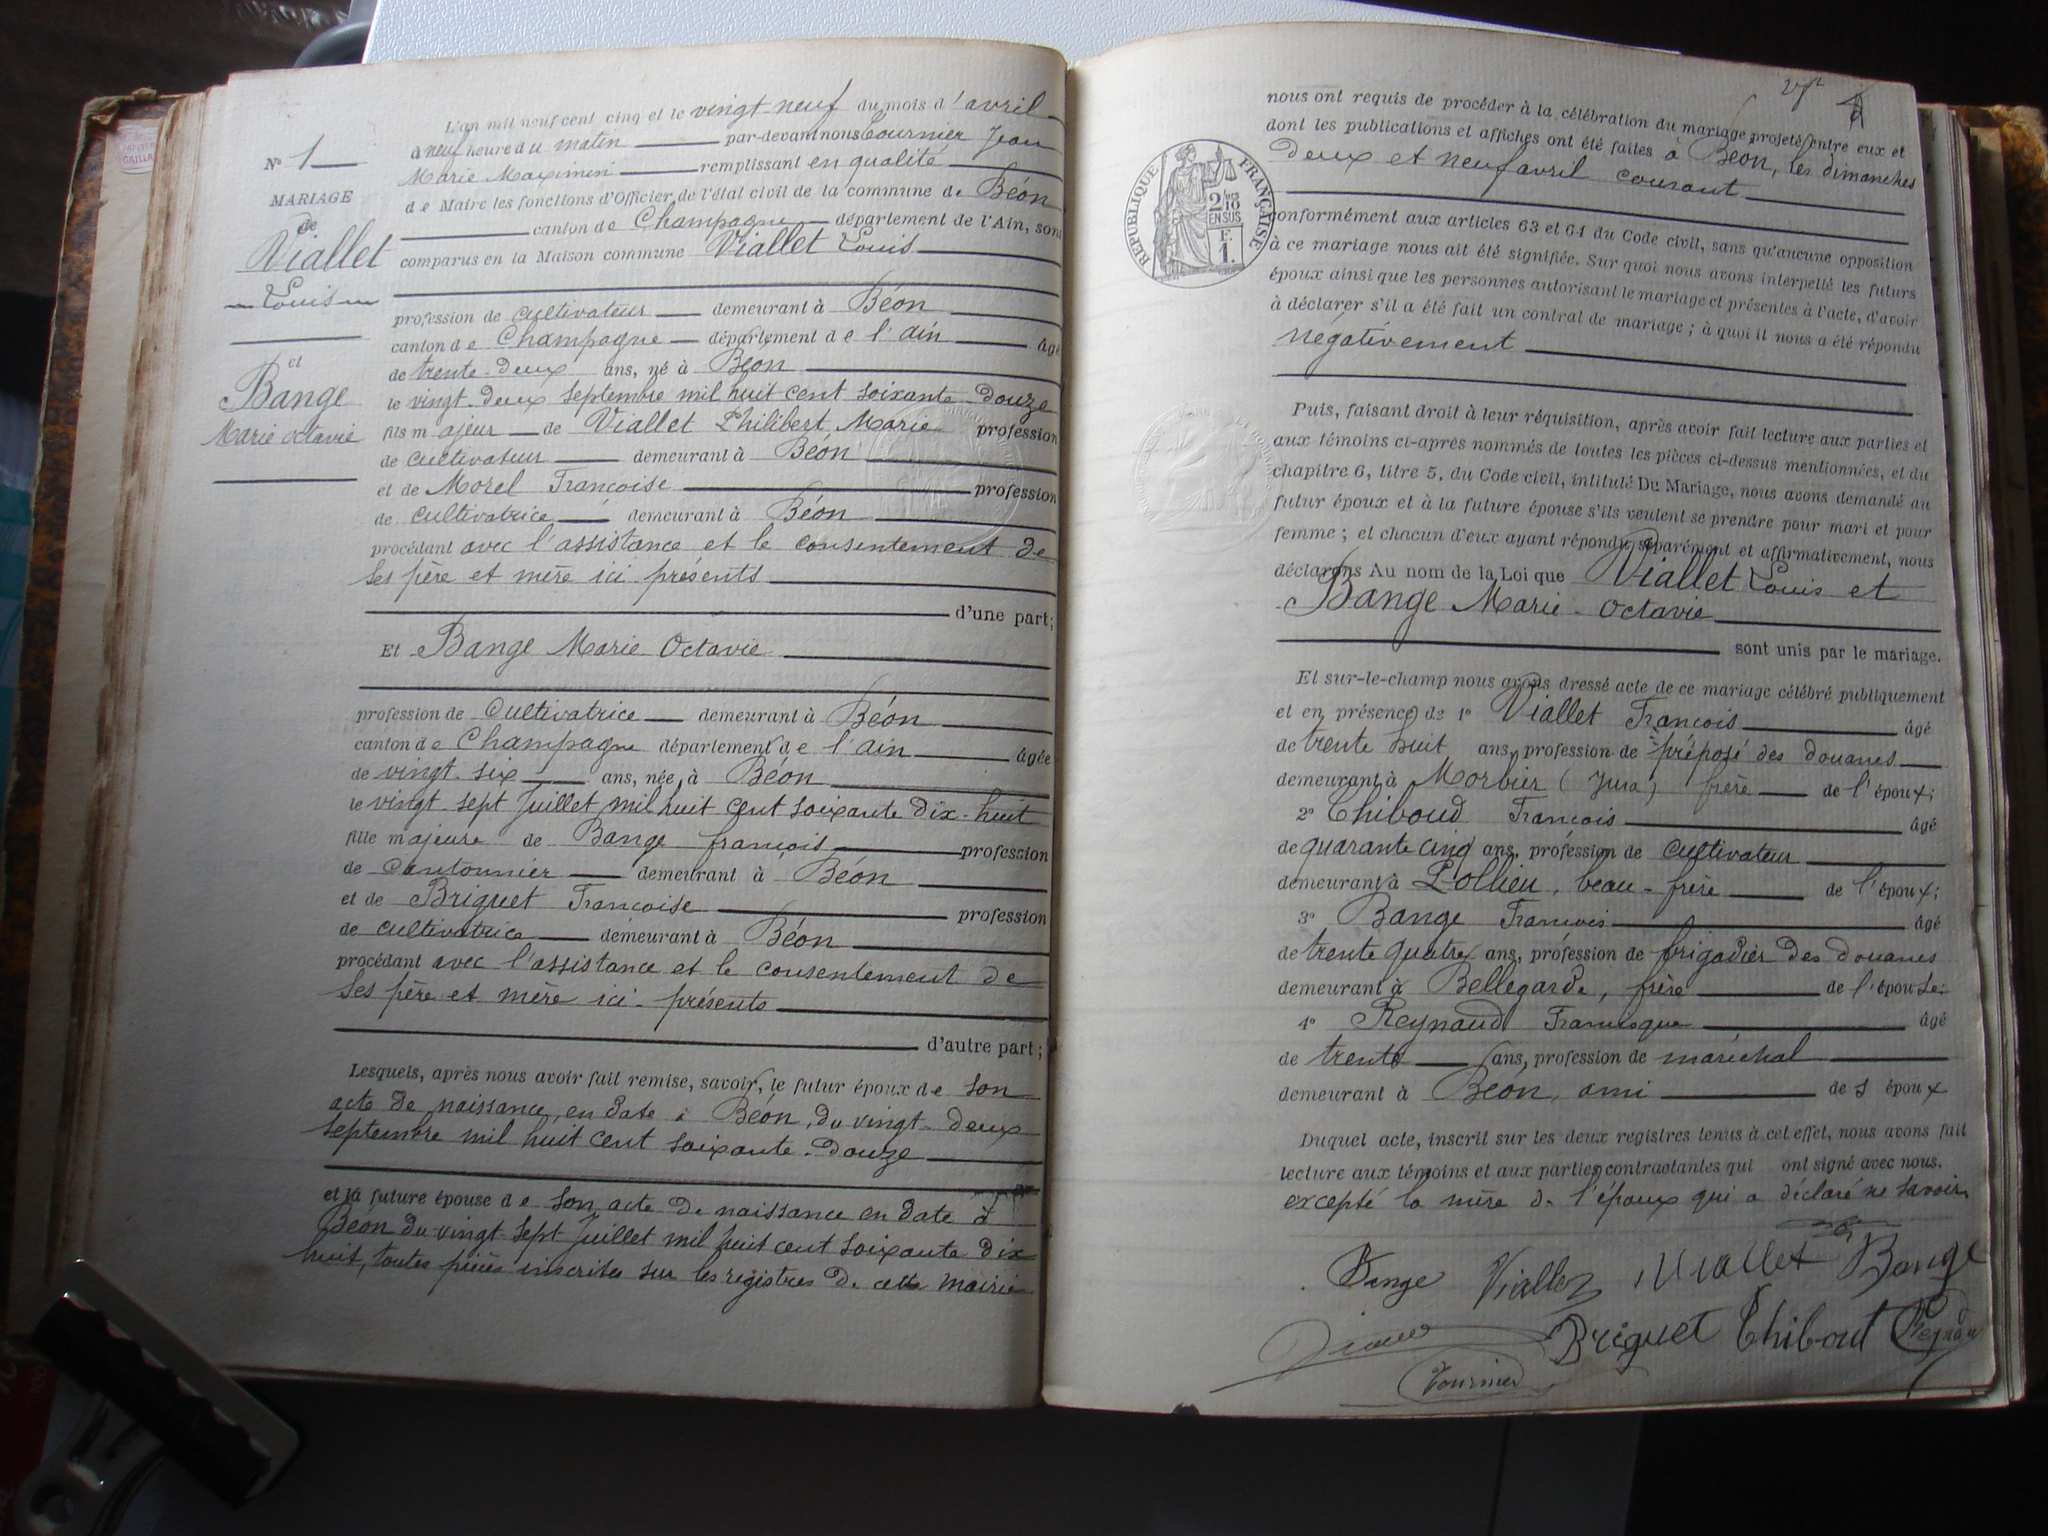 N° 1
MARIAGE
de
Viallet
Louis
et
Bange
Marie Octavie
L'an mil neuf cent cinq et le vingt-neuf du mois d'avril
à neuf heure du matin par-devant nous Tournier Jean
Marie Maximin remplissant en qualité
de Maire les fonctions d'Officier de l'état civil de la commune de Béon
canton de Champagne département de l'Ain, sont
comparus en la Maison commune Viallet Louis
profession de cultivateur demeurant à Béon
canton de Champagne département de l'ain âgé
de trente-deux ans, né à Béon
le vingt-deux septembre mil huit cent soixante-douze
fils majeur de Viallet Philibert Marie profession
de cultivateur demeurant à Béon
et de Morel Françoise profession
de cultivatrice demeurant à Béon
procédant avec l'assistance et le consentement de
ses père et mère ici présents
d'une part;
Et Bange Marie Octavie
profession de cultivatrice demeurant à Béon
canton de Champagne département de l'ain âgée
de vingt-six ans, née à Béon
le vingt-sept Juillet mil huit cent soixante dix-huit
fille majeure de Bange françois profession
de cantonnier demeurant à Béon
et de Briguet Françoise profession
de cultivatrice demeurant à Béon
procédant avec l'assistance et le consentement de
ses père et mère ici présents
d'autre part;
Lesquels, après nous avoir fait remise, savoir, le futur époux de son
acte de naissance, en date à Béon, du vingt-deux
septembre mil huit cent soixante-douze
et la future épouse de son acte de naissance en date à
Béon du vingt-sept Juillet mil huit cent soixante dix
huit, toutes pièces inscrites sur les registres de cette mairie
nous ont requis de procéder à la célébration du mariage projeté entre eux et
dont les publications et affiches ont été faites à Béon, les dimanches
deux et neuf avril courant
RÉPUBLIQUE FRANÇAISE
2/10
EN SUS
F.
1.
conformément aux articles 63 et 64 du Code civil, sans qu'aucune opposition
à ce mariage nous ait été signifiée. Sur quoi nous avons interpellé les futurs
époux ainsi que les personnes autorisant le mariage et présentes à l'acte, d'avoir
à déclarer s'il a été fait un contrat de mariage; à quoi il nous a été répondu
négativement
Puis, faisant droit à leur réquisition, après avoir fait lecture aux parties et
aux témoins ci-après nommés de toutes les pièces ci-dessus mentionnées, et du
chapitre 6, titre 5, du Code civil, intitulé Du Mariage, nous avons demandé au
futur époux et à la future épouse s'ils veulent se prendre pour mari et pour
femme; et chacun d'eux ayant répondu séparément et affirmativement, nous
déclarons Au nom de la Loi que Viallet Louis et
Bange Marie-Octavie
sont unis par le mariage.
Et sur-le-champ nous avons dressé acte de ce mariage célébré publiquement
et en présence de 1° Viallet François âgé
de trente huit ans, profession de préposé des douanes
demeurant à Morbier (Jura) frère de l'époux;
2° Thiboud François âgé
de quarante cinq ans, profession de cultivateur
demeurant à Lollieu, beau-frère de l'époux;
3° Bange François âgé
de trente quatre ans, profession de brigadier des douanes
demeurant à Bellegarde, frère de l'épouse;
4° Reynaud Francisque âgé
de trente ans, profession de maréchal
demeurant à Béon, ami des époux
Duquel acte, inscrit sur les deux registres tenus à cet effet, nous avons fait
lecture aux témoins et aux parties contractantes qui ont signé avec nous.
excepté la mère de l'époux qui a déclaré ne savoir
Bange Viallet Viallet Bange
Briguet Thibout Reynau
Tournier